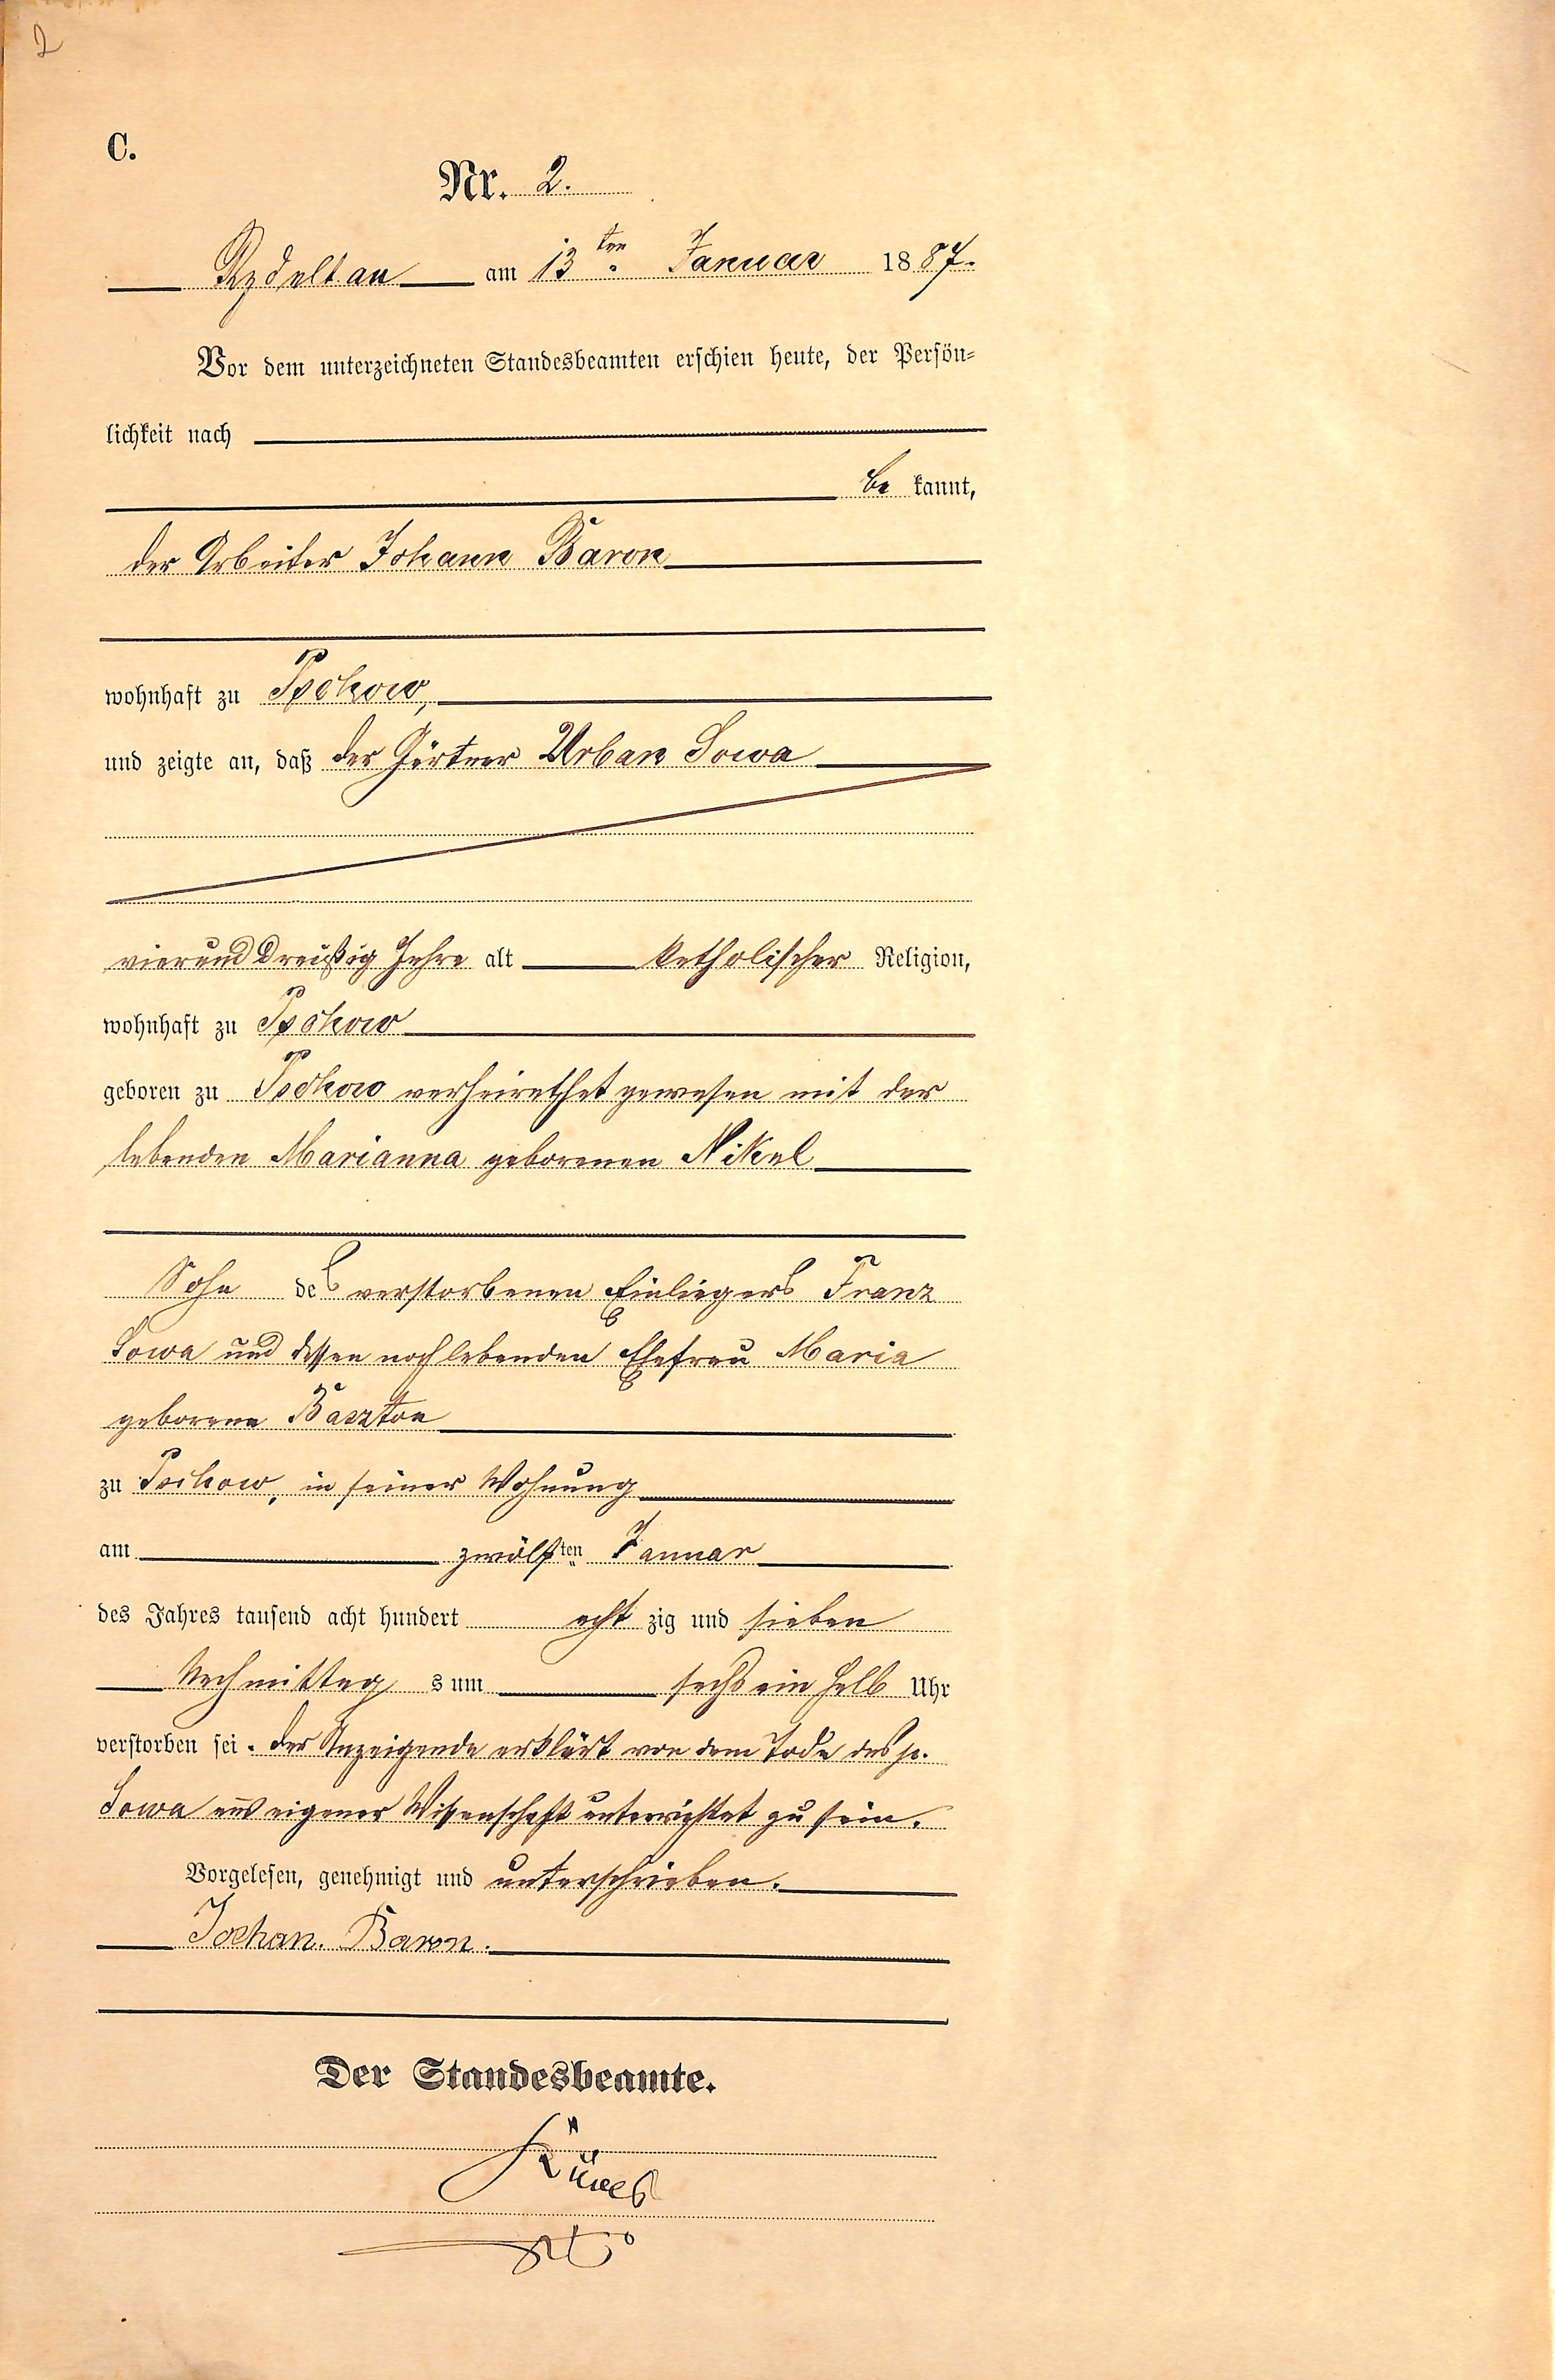 2
C.
Nr. 2.
Rydultau am 13ten Januar 1887.
Vor dem unterzeichneten Standesbeamten erschien heute, der Persön-
lichkeit nach
be kannt,
der Arbeiter Johann Baron
wohnhaft zu Pschow,
und zeigte an, daß der Gärtner Urban Sowa
vierund Dreißig Jahre alt katholischer Religion,
wohnhaft zu Pschow
geboren zu Pschow verheirathet gewesen mit der
lebenden Marianna geborenen Nikel
Sohn des verstorbenen Einliegers Franz
Sowa und dessen noch lebenden Ehefrau Maria
geborene Baszton
zu Pschow, in seiner Wohnung
am zwölften Januar
des Jahres tausend acht hundert acht zig und sieben
Nachmittag s um sechs ein halb Uhr
verstorben sei. Der Anzeigende erklärt von dem Tode des p.
Sowa aus eigener Wissenschaft unterrichtet zu sein.
Vorgelesen, genehmigt und unterschrieben.
Johan. Baron.
Der Standesbeamte.